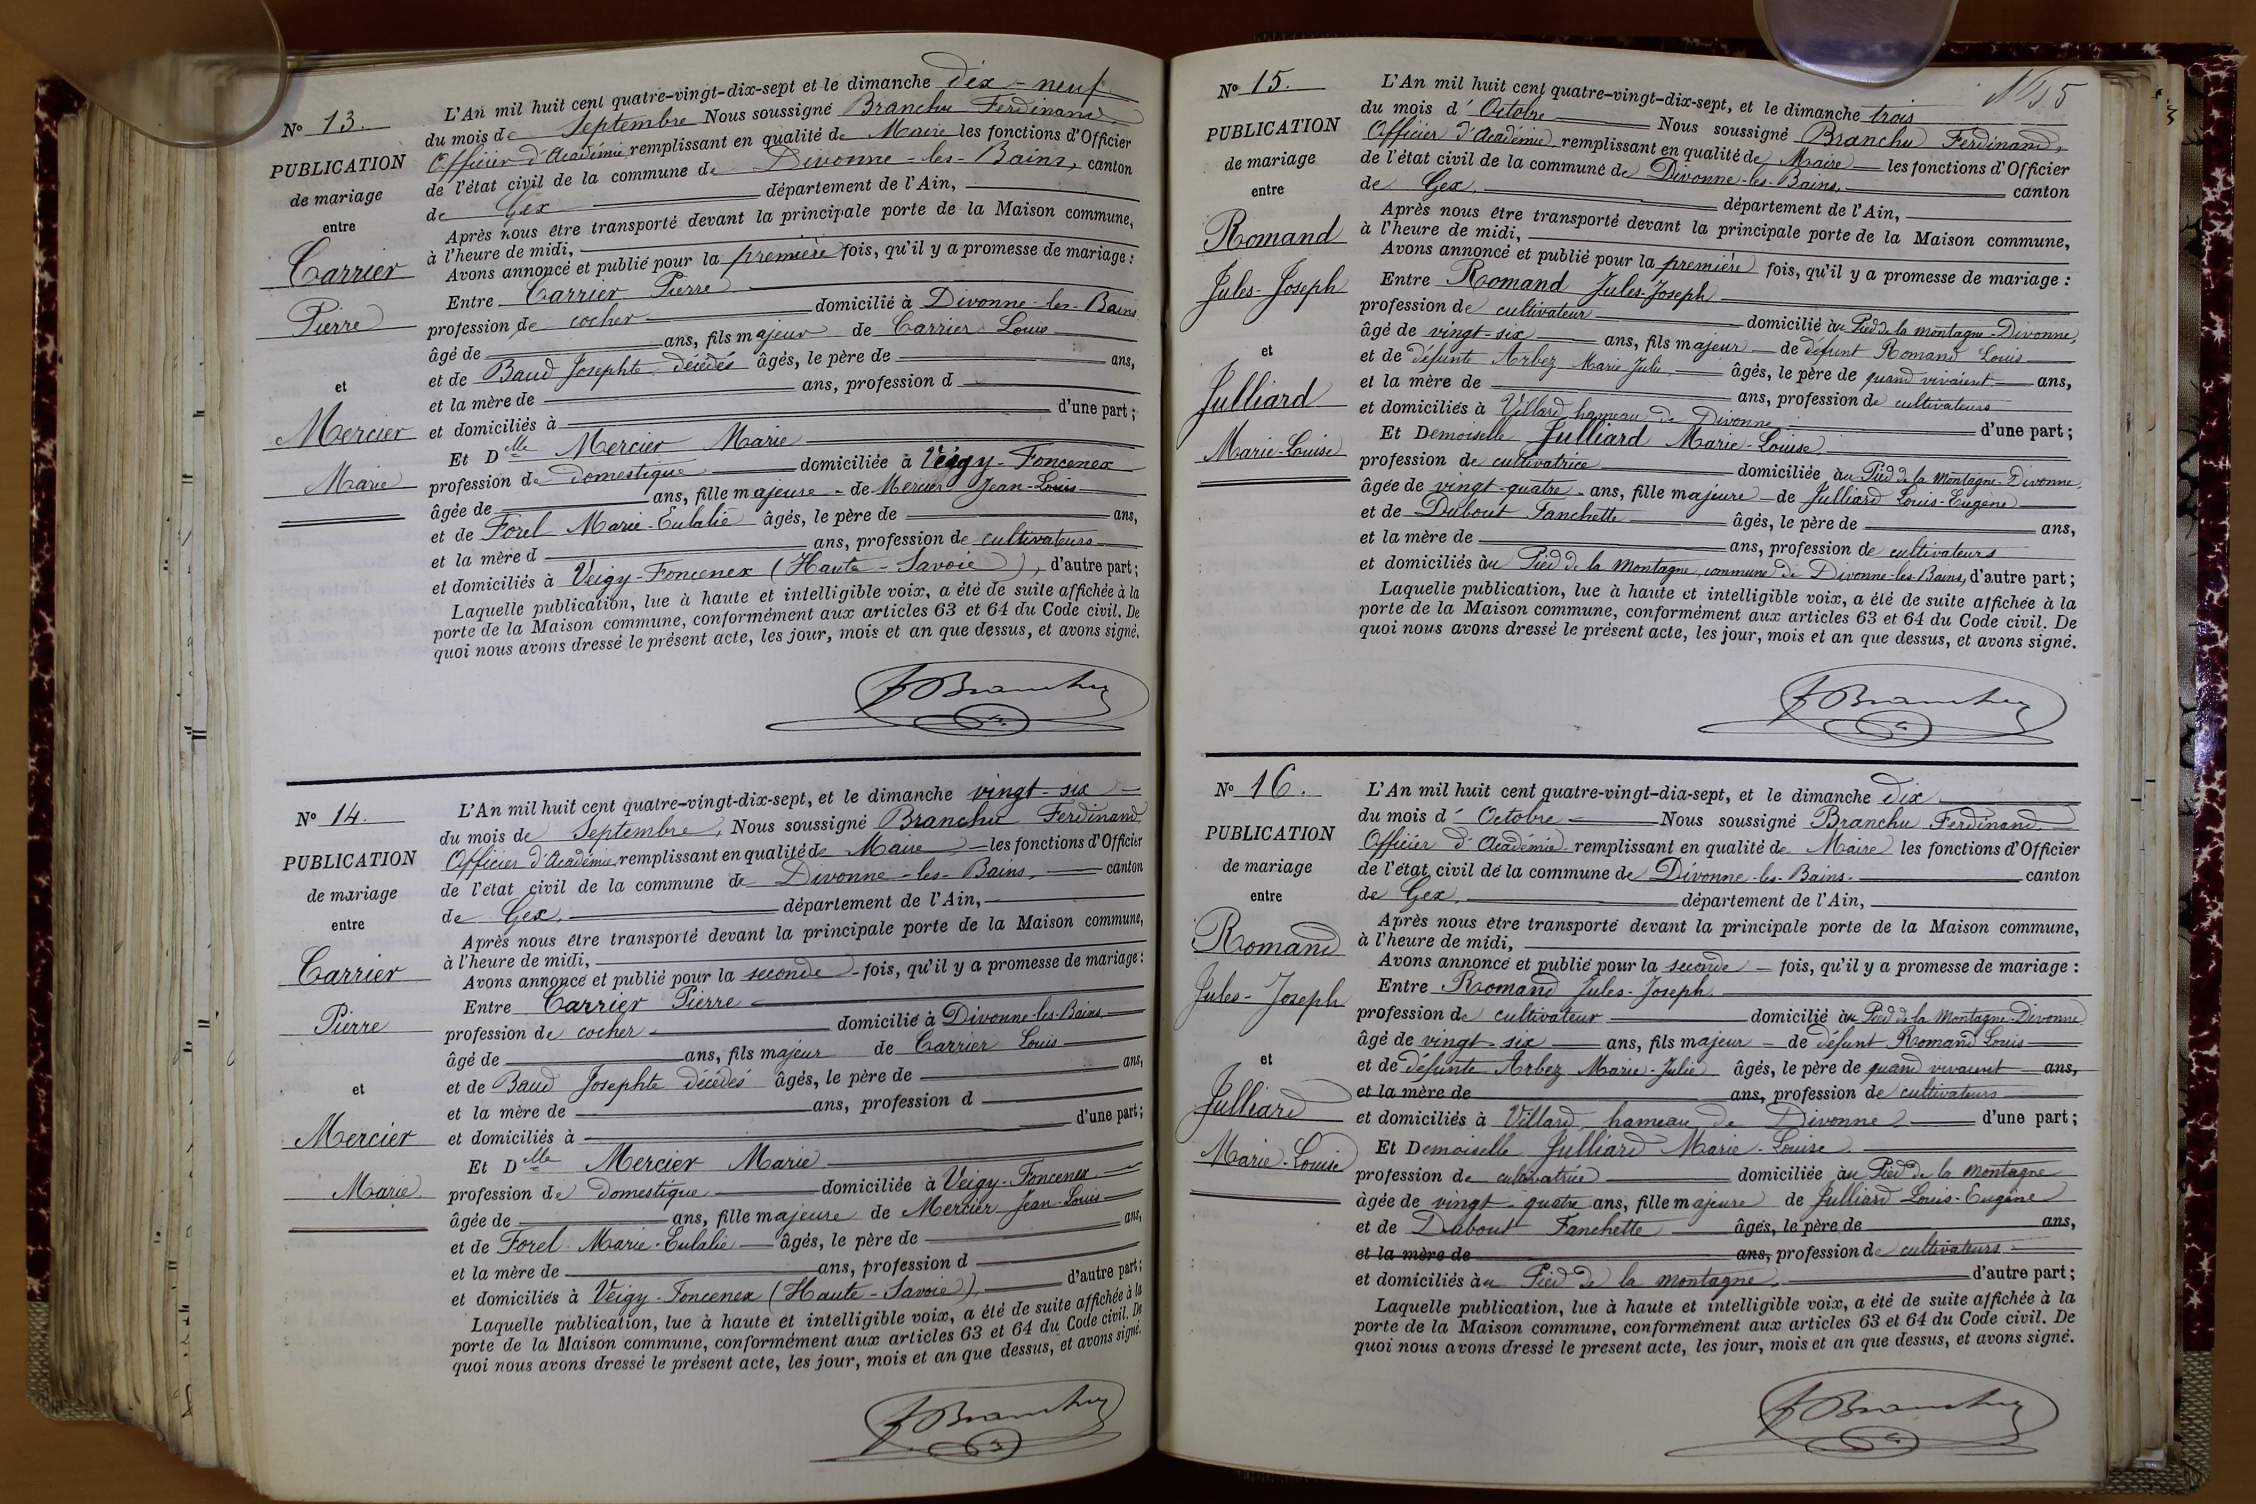 N° 13.
PUBLICATION
de mariage
entre
Carrier
Pierre
et
Mercier
Marie
L'An mil huit cent quatre-vingt-dix-sept et le dimanche dix-neuf
du mois de Septembre Nous soussigné Branchu Ferdinand
Officier d'Académie remplissant en qualité de Maire les fonctions d'Officier
de l'état civil de la commune de Divonne-les-Bains, canton
de Gex département de l'Ain,
Après nous être transporté devant la principale porte de la Maison commune,
à l'heure de midi,
Avons annoncé et publié pour la première fois, qu'il y a promesse de mariage :
Entre Carrier Pierre
profession de cocher domicilié à Divonne-les-Bains
âgé de ans, fils majeur de Carrier Louis
et de Baud Josephte décédés âgés, le père de ans,
et la mère de ans, profession d
et domiciliés à d'une part ;
Et Dlle Mercier Marie
profession de domestique domiciliée à Veigy-Foncenex
âgée de ans, fille majeure de Mercier Jean-Louis
et de Forel Marie-Eulalie âgés, le père de ans,
et la mère d ans, profession de cultivateurs
et domiciliés à Veigy-Foncenex (Haute-Savoie), d'autre part ;
Laquelle publication, lue à haute et intelligible voix, a été de suite affichée à la
porte de la Maison commune, conformément aux articles 63 et 64 du Code civil. De
quoi nous avons dressé le présent acte, les jour, mois et an que dessus, et avons signé.
F Branchu
N° 14.
PUBLICATION
de mariage
entre
Carrier
Pierre
et
Mercier
Marie
L'An mil huit cent quatre-vingt-dix-sept, et le dimanche vingt-six
du mois de Septembre, Nous soussigné Branchu Ferdinand
Officier d'Académie remplissant en qualité de Maire les fonctions d'Officier
de l'état civil de la commune de Divonne-les-Bains, canton
de Gex, département de l'Ain,
Après nous être transporté devant la principale porte de la Maison commune,
à l'heure de midi,
Avons annoncé et publié pour la seconde fois, qu'il y a promesse de mariage :
Entre Carrier Pierre
profession de cocher domicilié à Divonne-les-Bains
âgé de ans, fils majeur de Carrier Louis
et de Baud Josephte décédés âgés, le père de ans,
et la mère de ans, profession d
et domiciliés à d'une part ;
Et Dlle Mercier Marie
profession de domestique domiciliée à Veigy-Foncenex
âgée de ans, fille majeure de Mercier Jean-Louis
et de Forel Marie-Eulalie âgés, le père de ans,
et la mère de ans, profession d
et domiciliés à Veigy-Foncenex (Haute-Savoie) d'autre part ;
Laquelle publication, lue à haute et intelligible voix, a été de suite affichée à la
porte de la Maison commune, conformément aux articles 63 et 64 du Code civil. De
quoi nous avons dressé le présent acte, les jour, mois et an que dessus, et avons signé.
F Branchu
N° 15.
PUBLICATION
de mariage
entre
Romand
Jules-Joseph
et
Julliard
Marie-Louise
L'An mil huit cent quatre-vingt-dix-sept, et le dimanche trois
du mois d'Octobre Nous soussigné Branchu Ferdinand,
Officier d'Académie remplissant en qualité de Maire les fonctions d'Officier
de l'état civil de la commune de Divonne-les-Bains, canton
de Gex, département de l'Ain,
Après nous être transporté devant la principale porte de la Maison commune,
à l'heure de midi,
Avons annoncé et publié pour la première fois, qu'il y a promesse de mariage :
Entre Romand Jules-Joseph
profession de cultivateur domicilié au Pied de la montagne-Divonne,
âgé de vingt-six ans, fils majeur de défunt Romand Louis
et de défunte Arbez Marie Julie, âgés, le père de quand vivaient ans,
et la mère de ans, profession de cultivateurs
et domiciliés à Villard hameau de Divonne d'une part ;
Et Demoiselle Julliard Marie-Louise
profession de cultivatrice domiciliée au Pied de la montagne-Divonne,
âgée de vingt-quatre ans, fille majeure de Julliard Louis-Eugène
et de Dubout Fanchette âgés, le père de ans,
et la mère de ans, profession de cultivateurs
et domiciliés au Pied de la montagne, commune de Divonne-les-Bains, d'autre part ;
Laquelle publication, lue à haute et intelligible voix, a été de suite affichée à la
porte de la Maison commune, conformément aux articles 63 et 64 du Code civil. De
quoi nous avons dressé le présent acte, les jour, mois et an que dessus, et avons signé.
F Branchu
N° 16.
PUBLICATION
de mariage
entre
Romand
Jules-Joseph
et
Julliard
Marie-Louise
L'An mil huit cent quatre-vingt-dix-sept, et le dimanche dix
du mois d'Octobre Nous soussigné Branchu Ferdinand
Officier d'Académie remplissant en qualité de Maire les fonctions d'Officier
de l'état civil de la commune de Divonne-les-Bains. canton
de Gex, département de l'Ain,
Après nous être transporté devant la principale porte de la Maison commune,
à l'heure de midi,
Avons annoncé et publié pour la seconde fois, qu'il y a promesse de mariage :
Entre Romand Jules-Joseph
profession de cultivateur domicilié au Pied de la Montagne-Divonne
âgé de vingt-six ans, fils majeur de défunt Romand Louis
et de défunte Arbez Marie-Julie âgés, le père de quand vivaient ans,
et la mère de ans, profession de cultivateurs
et domiciliés à Villard, hameau de Divonne d'une part ;
Et Demoiselle Julliard Marie-Louise
profession de cultivatrice domiciliée au Pied de la montagne
âgée de vingt-quatre ans, fille majeure de Julliard Louis-Eugène
et de Dubout Fanchette âgés, le père de ans,
et la mère de ans, profession de cultivateurs
et domiciliés au Pied de la montagne, d'autre part ;
Laquelle publication, lue à haute et intelligible voix, a été de suite affichée à la
porte de la Maison commune, conformément aux articles 63 et 64 du Code civil. De
quoi nous avons dressé le présent acte, les jour, mois et an que dessus, et avons signé.
F Branchu